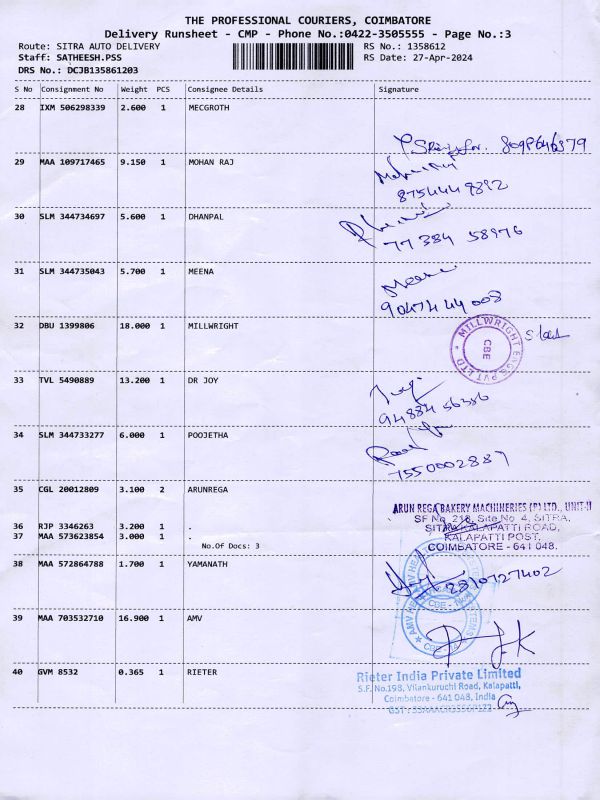 THE PROFESSIONAL COURIERS, COIMBATORE
Delivery Runsheet - CMP - Phone No.:0422-3505555 - Page No.:3
Route: SITRA AUTO DELIVERY RS No.: 1358612
Staff: SATHEESH.PSS RS Date: 27-Apr-2024
DRS No.: DCJB135861203
S No Consignment No Weight PCS Consignee Details Signature
28 IXM 506298339 2.600 1 MECGROTH
29 MAA 109717465 9.150 1 MOHAN RAJ
8754449892
30 SLM 344734697 5.600 1 DHANPAL
77 384 58976
31 SLM 344735043 5.700 1 MEENA
Meena
9047444008
32 DBU 1399806 18.000 1 MILLWRIGHT
MILLWRIGHT ENGG PVT LTD
CBE
33 TVL 5490889 13.200 1 DR JOY
94884 56386
34 SLM 344733277 6.000 1 POOJETHA
7550002887
35 CGL 20012809 3.100 2 ARUNREGA
ARUN REGA BAKERY MACHINERIES (P) LTD., UNIT-II
SF No. 218, Site No. 4, SITRA,
SITRA KALAPATTI ROAD,
36 RJP 3346263 3.200 1 .
KALAPATTI POST,
37 MAA 573623854 3.000 1 .
COIMBATORE - 641 048.
No.Of Docs: 3
38 MAA 572864788 1.700 1 YAMANATH
39 MAA 703532710 16.900 1 AMV
40 GVM 8532 0.365 1 RIETER
Rieter India Private Limited
S.F. No.198, Vilankuruchi Road, Kalapatti,
Coimbatore - 641 048, India